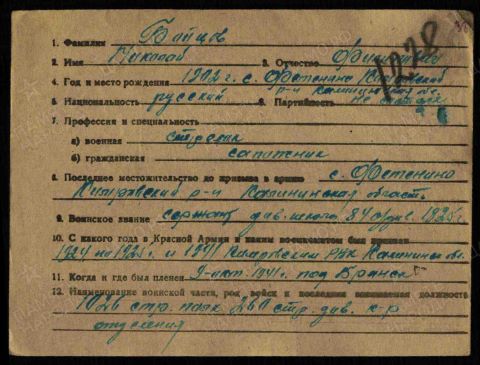 1928
1. Фамилия Бойцов
2. Имя Николай 3. Отчество
4. Год и место рождения 1902 г. с. Фетенино
р-н Калининская об.
5. Национальность русский 6. Партийность
7. Профессия и специальность
а) военная стрелок
б) гражданская сапожник
8. Последнее местожительство до призыва в армию с. Фетенино
р-н Калининская область
9. Воинское звание сержант див. школа 1925 г.
10. С какого года в Красной Армии и каким военкоматом был призван
1924 по 1925 г. и 1941 РВК Калинин об.
11. Когда и где был пленен 9 окт. 1941 г. под Брянск
12. Наименование воинской части, род войск и последняя занимаемая должность
1026 стр. полк 260 стр. див. к-р
отделения